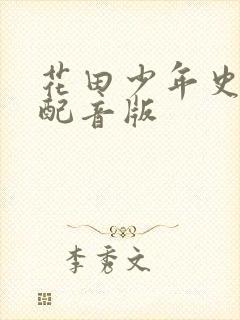 花田少年史
配音版
李秀文